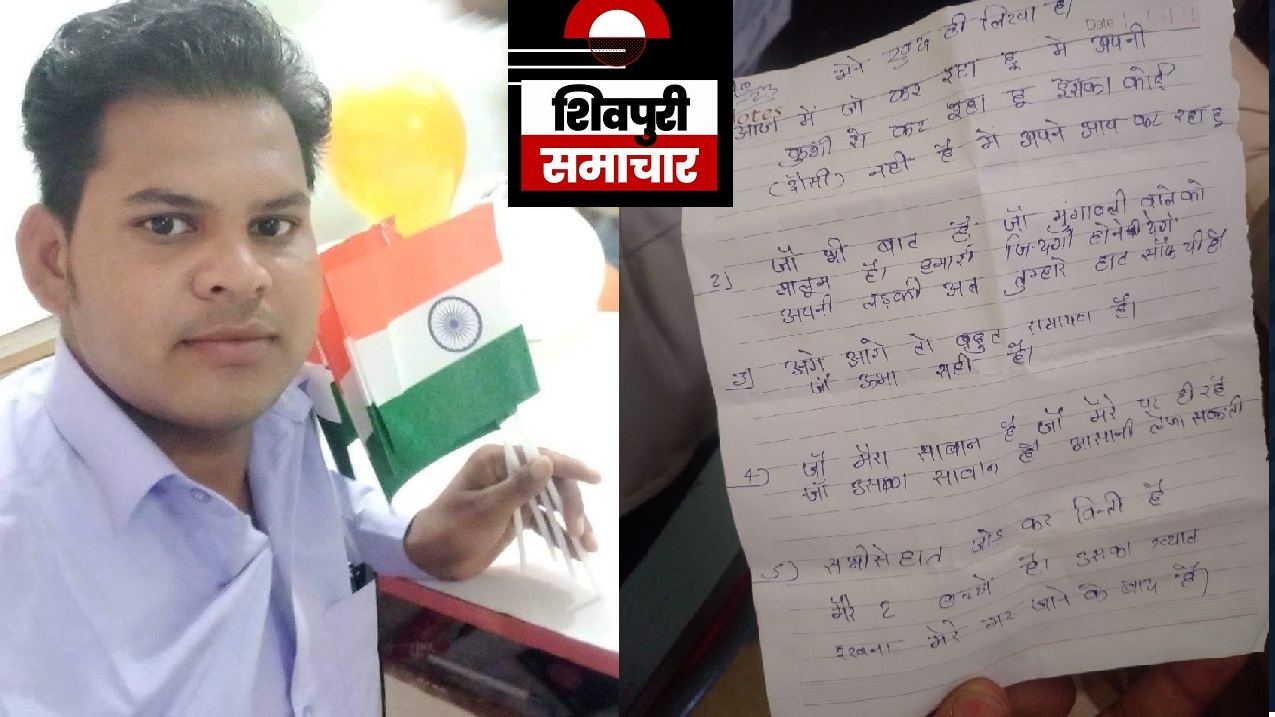 शिवपुरी
समाचार
Date
मेने खुद ही लिखा है।
Notes
आज में जो कर रहा हू में अपनी
खुशी से कर रहा हू इसका कोई
(दोसी) नही है में अपने आप कर रहा हू
2) जॉ भी बात है जॉ मुंगावली वाले को
मालूम है। हमारी होने
अपनी लड़की अब तुम्हारे हाट सॉक
3) अगे आगे तो बहुत है।
जॉ सही है।
4) जॉ मेरा सावान है जॉ मेरे पर ही रहे
जॉ उसका सावान है आसानी लेजा सकती
5) सभी से हात जोड़ कर विन्ती है
मेरे 2 बच्चो है। उसका ख्याल
रखना मेरे मर जाने के बाय है।